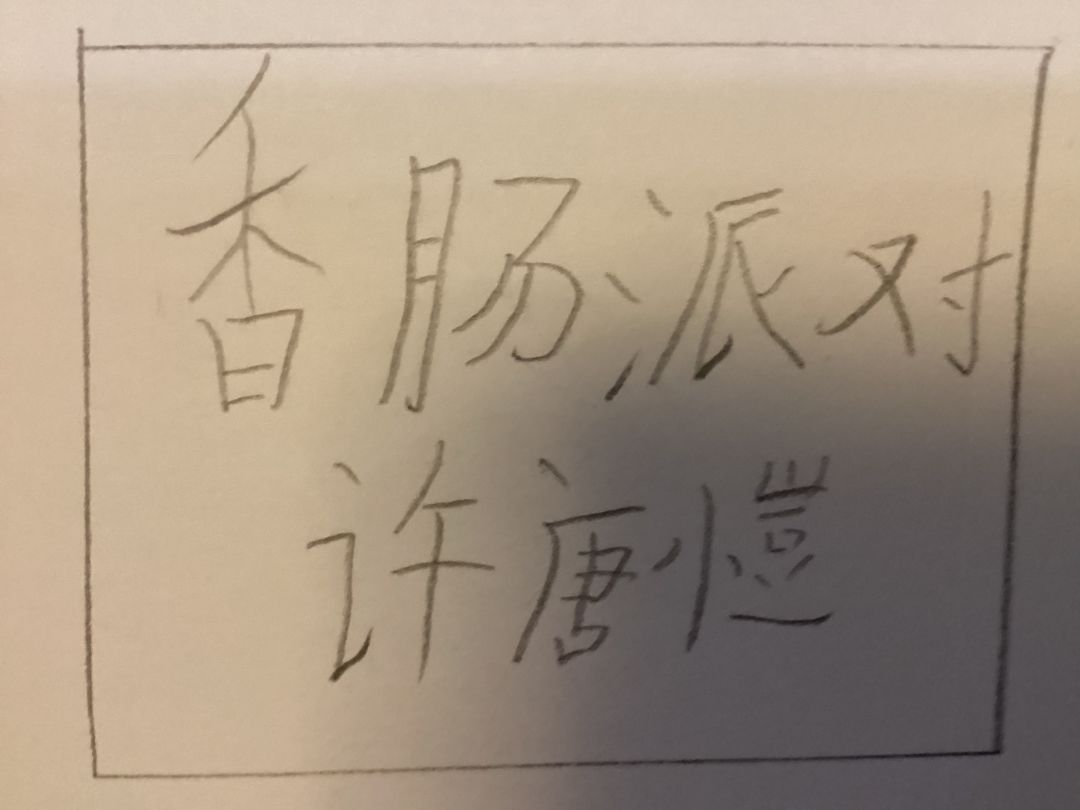 香肠派对
许唐恺